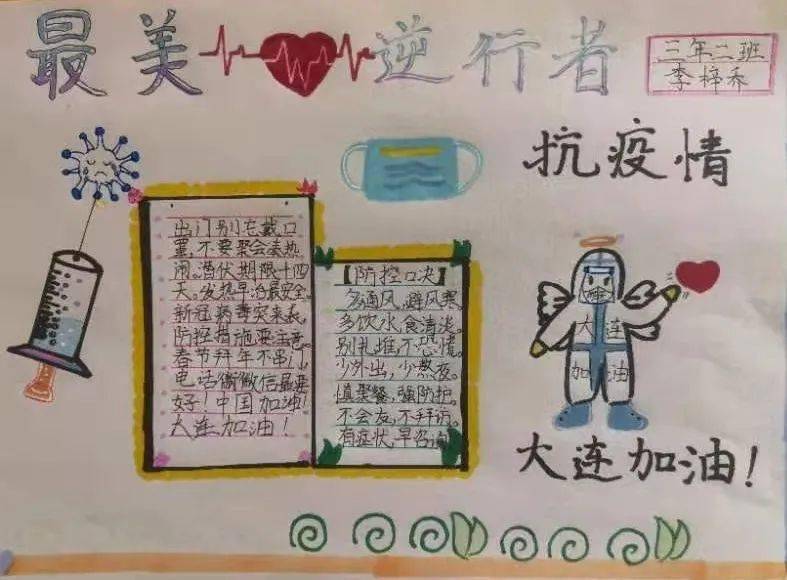 最美 逆行者
三年二班
李梓
抗疫情
出门别忘戴口
罩,不要聚会凑热
闹。潜伏期限十四
天。发热早治最安全。
新冠病毒突来袭,
防控措施要注意。
春节拜年不串门,
电话 微信最是
好!中国加油!
大连加油!
【防控口决】
多通风,避风寒。
多饮水,食清淡。
别扎堆,不恐慌。
少外出,少熬夜。
慎聚餐,强防护。
不会友,不拜访。
有症状,早咨询
大连
加油
大连加油!